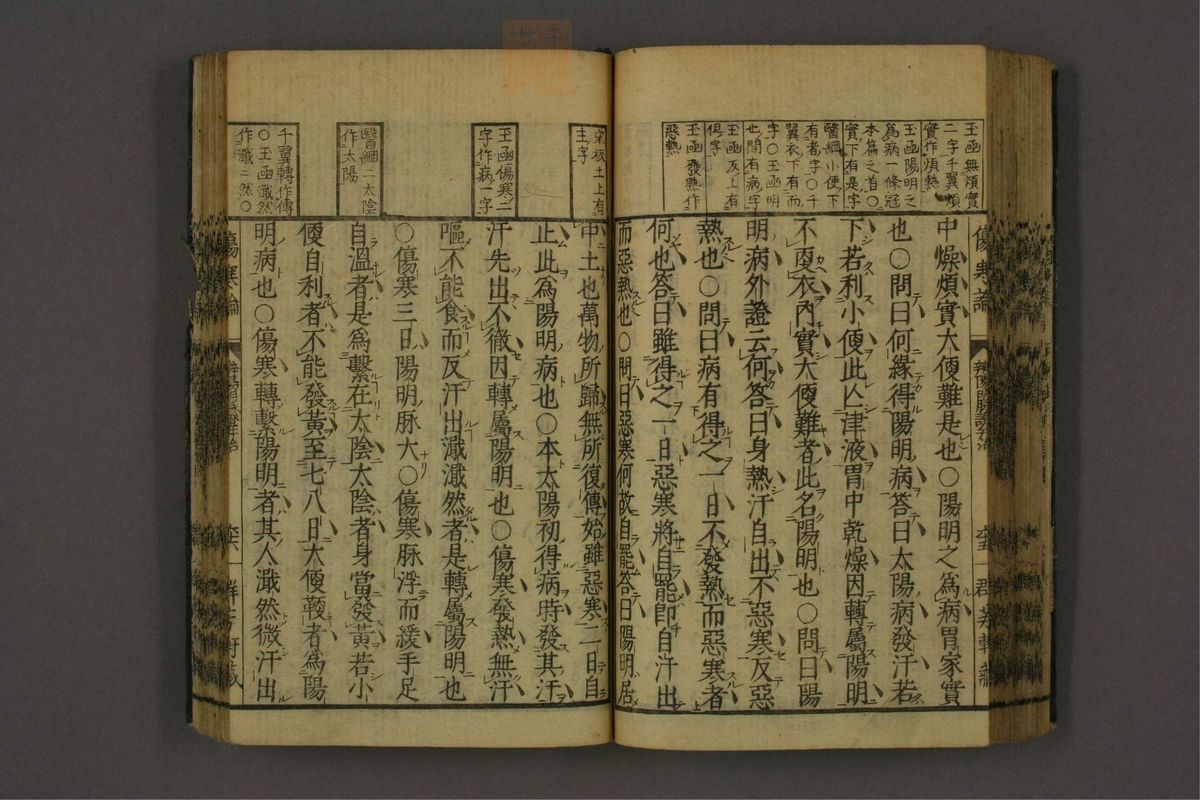 玉函無煩實
二字千翼煩
實作煩熱
玉函陽明之
爲病一條冠
本篇之首〇
實下有是字
醫綱小便下
有者字〇千
翼衣下有而
字〇玉函明
也問有病字
玉函反上有
但字
玉函發熱作
惡熱
傷寒論
中燥煩實大便難是也〇陽明之爲病胃家實
也〇問曰何緣得陽明病答曰太陽病發汗若
下若利小便此亾津液胃中乾燥因轉屬陽明
不更衣內實大便難者此名陽明也〇問曰陽
明病外證云何答曰身熱汗自出不惡寒反惡
熱也〇問曰病有得之一日不發熱而惡寒者
何也答曰雖得之一日惡寒將自罷卽自汗出
而惡熱也〇問曰惡寒何故自罷答曰陽明居
宋板土上有
主字
玉函傷寒二
字作病一字
醫綱二太陰
作太陽
千翼轉作傳
〇玉函濈然
作濈濈然〇
中土也萬物所歸無所復傳始雖惡寒二日自
止此爲陽明病也〇本太陽初得病時發其汗
汗先出不徹因轉屬陽明也〇傷寒發熱無汗
嘔不能食而反汗出濈濈然者是轉屬陽明也
〇傷寒三日陽明脉大〇傷寒脉浮而緩手足
自溫者是爲繫在太陰太陰者身當發黃若小
便自利者不能發黃至七八日大便鞕者爲陽
明病也〇傷寒轉繫陽明者其人濈然微汗出
傷寒論